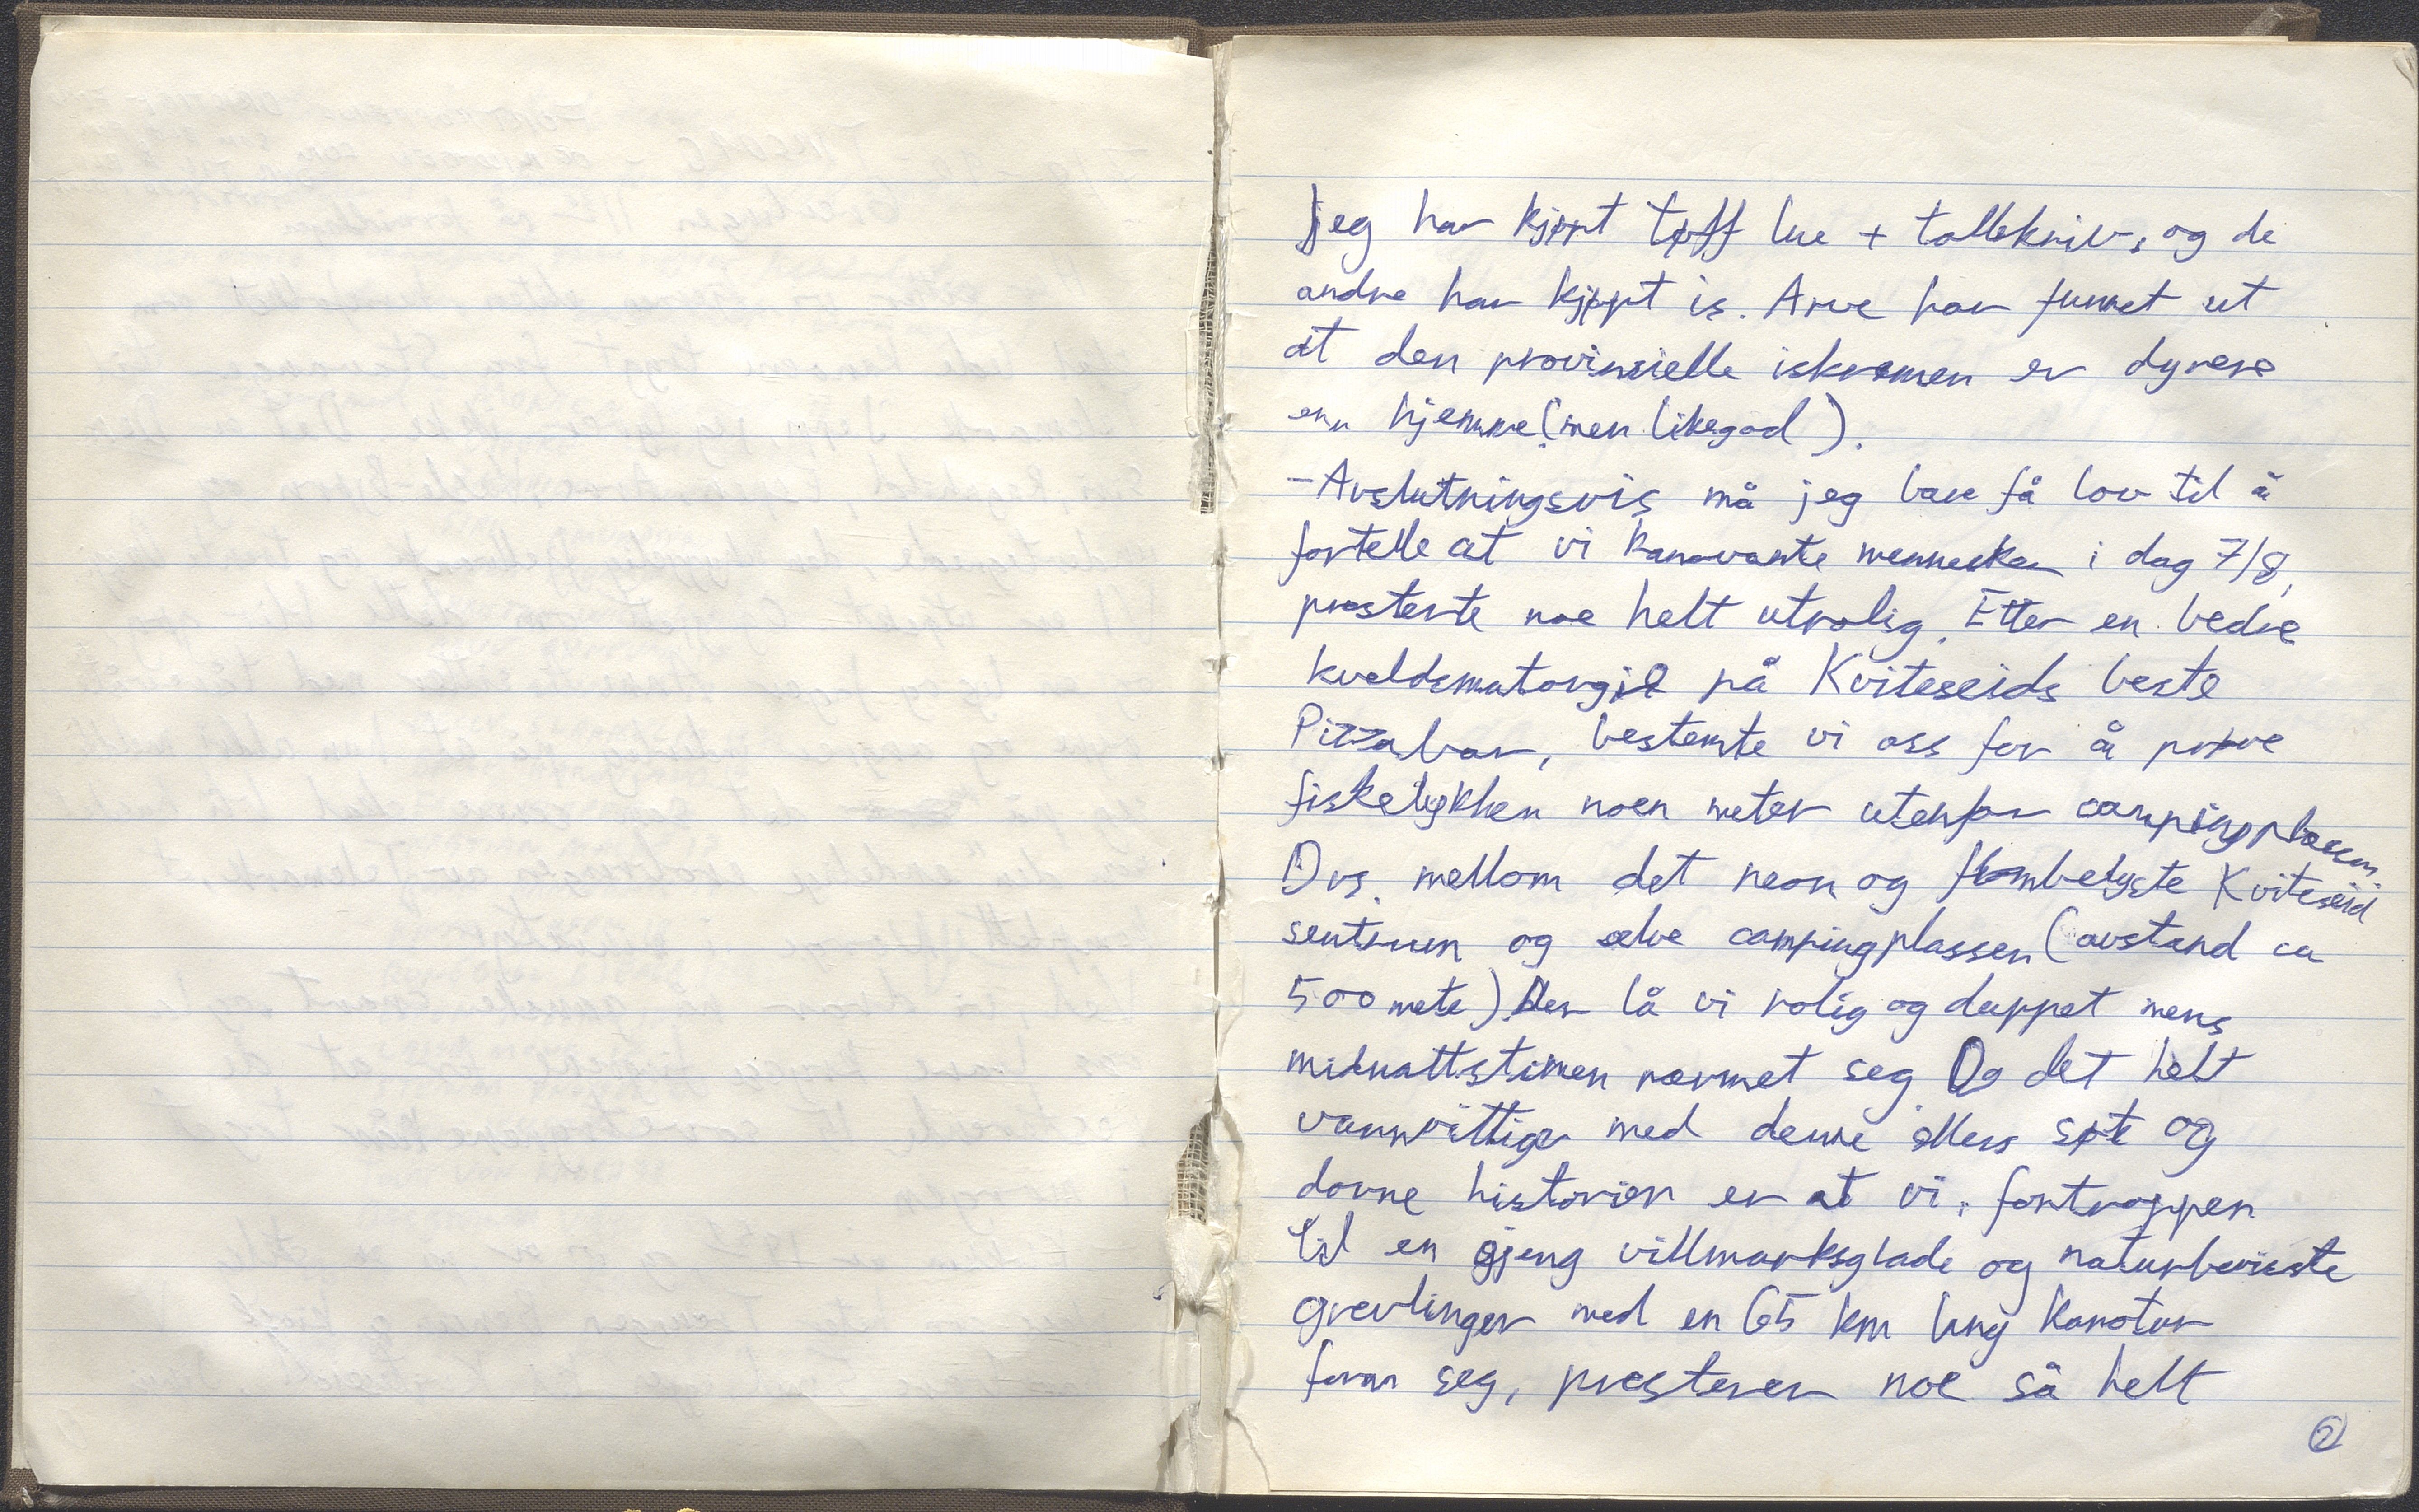 jeg har kjøpt tøff lue + tollekniv, og de
andre har kjøpt is. Arve har funnet ut
at den provinsielle iskremen er dyrere
enn hjemme (men likegod).
- Avslutningsvis må jeg bare få lov til å
fortelle at vi kanovante mennesker i dag 7/8,
presterte noe helt utrolig. Etter en bedre
kveldsmatorgie på Kviteseids beste
Pizzabar, bestemte vi oss for å prøve
fiskelykken noen meter utenfor campingplassen.
Dvs. mellom det neon og flombelyste Kviteseid
sentrum og selve campingplassen (avstand ca
500 mete) Der lå vi rolig og duppet mens
midnattstimen nærmet seg. Og det helt
vannvittige med denne ellers søte og
dovne historien er at vi, fortroppen
til en gjeng villmarksglade og naturbevisste
grevlinger med en 65 km lang kanotur
foran seg, presterer noe så helt
2